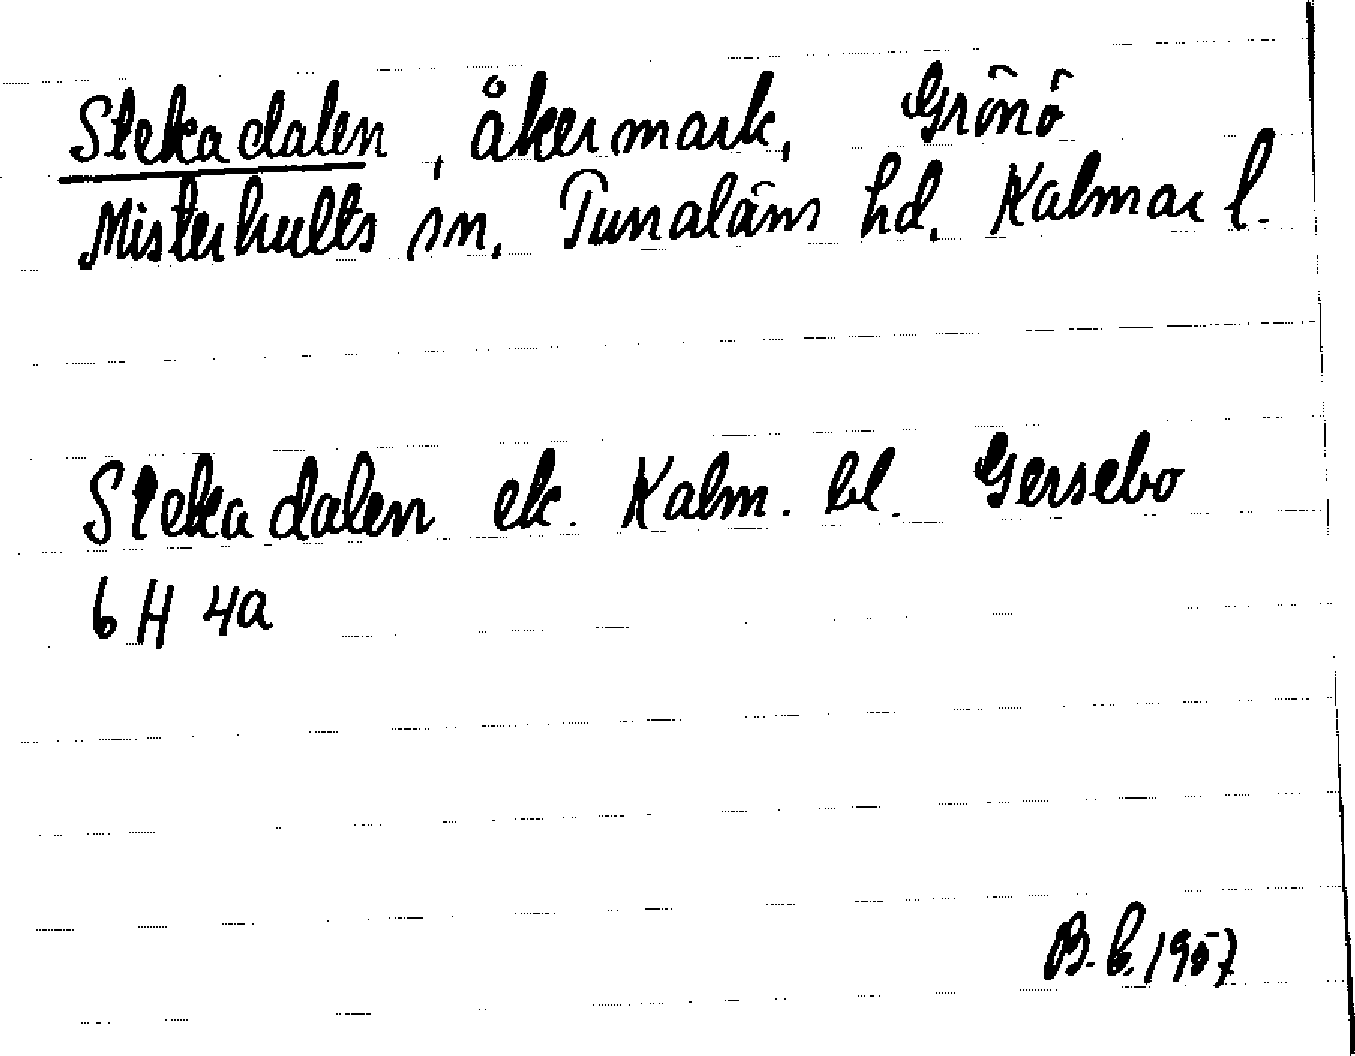 Stekadalen, åkermark, Grönö
Misterhults sn. Tunaläns hd. Kalmar l.
Stekadalen ek. Kalm. bl. Gersebo
6 H 4a
B.C. 1957